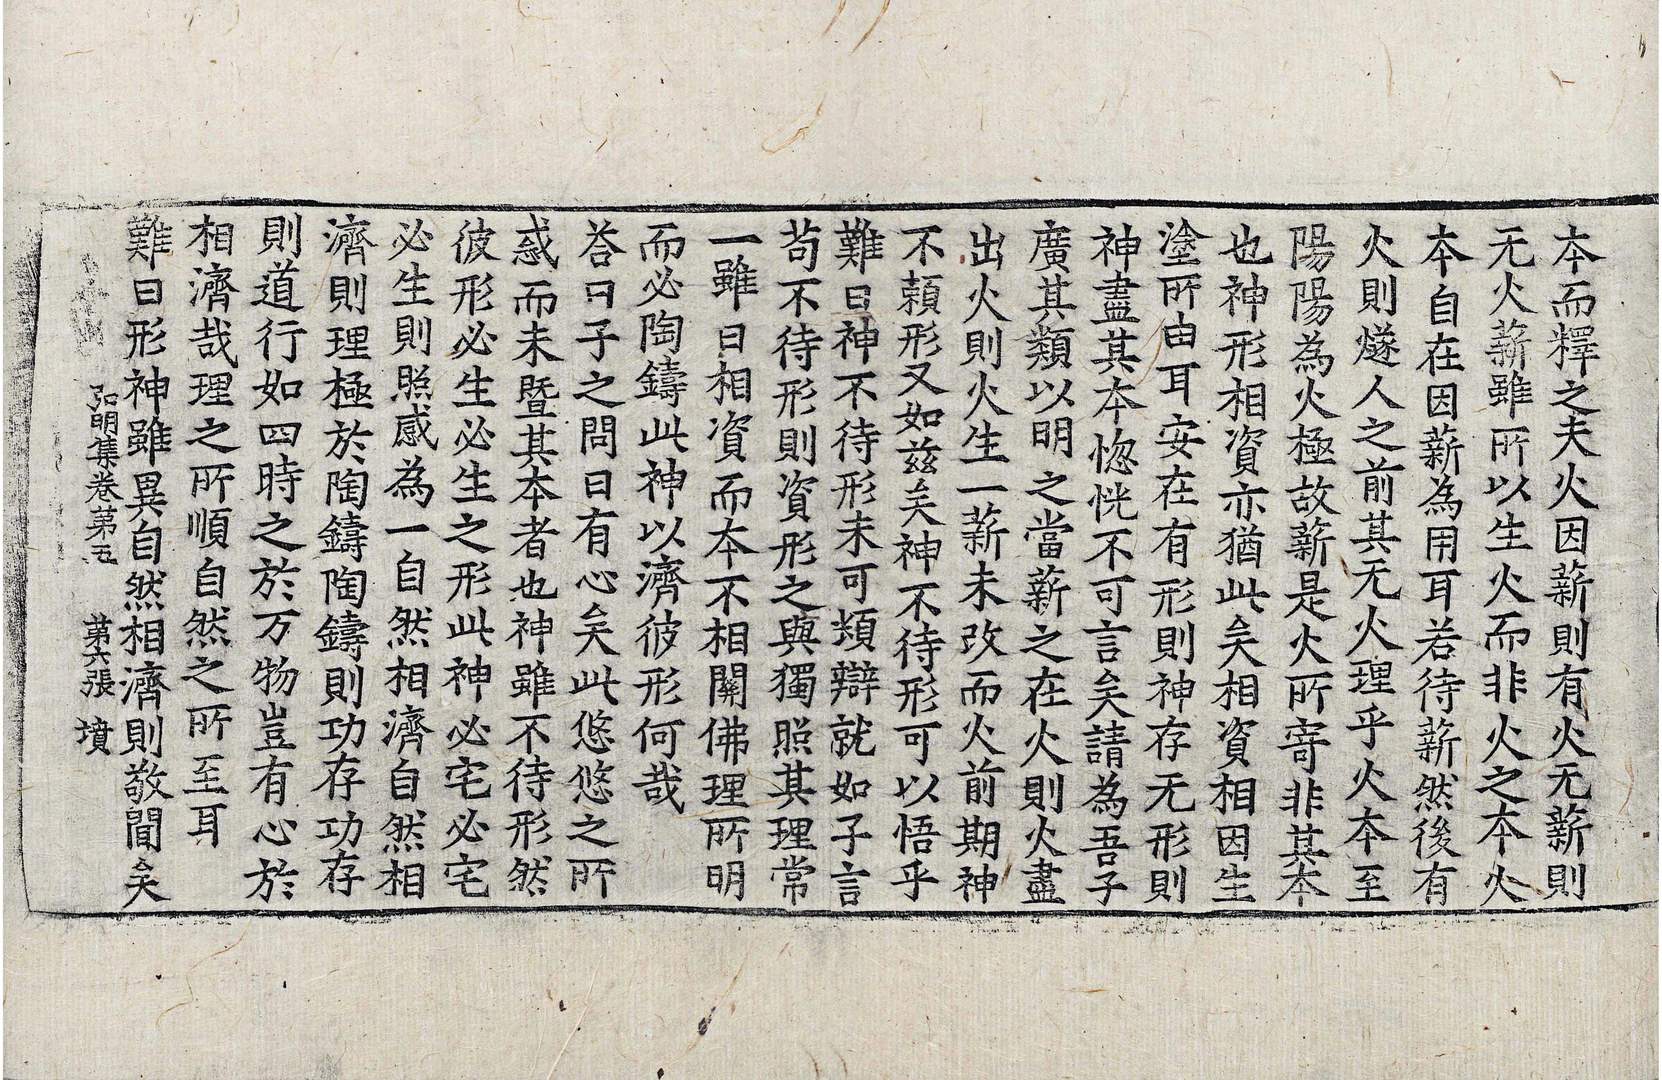 本而釋之夫火因薪則有火无薪則
无火薪雖所以生火而非火之本火
本自在因薪為用耳若待薪然後有
火則燧人之前其无火理乎火本至
陽陽為火極故薪是火所寄非其本
也神形相資亦猶此矣相資相因生
塗所由耳安在有形則神存无形則
神盡其本惚恍不可言矣請為吾子
廣其類以明之當薪之在火則火盡
出火則火生一薪未改而火前期神
不賴形又如茲矣神不待形可以悟乎
難曰神不待形未可頻辯就如子言
苟不待形則資形之與獨照其理常
一雖曰相資而本不相關佛理所明
而必陶鑄此神以濟彼形何哉
荅曰子之問曰有心矣此悠悠之所
惑而未暨其本者也神雖不待形然
彼形必生必生之形此神必宅必宅
必生則照感為一自然相濟自然相
濟則理極於陶鑄陶鑄則功存功存
則道行如四時之於万物豈有心於
相濟哉理之所順自然之所至耳
難曰形神雖異自然相濟則敬聞矣
弘明集卷第五 第六張 墳